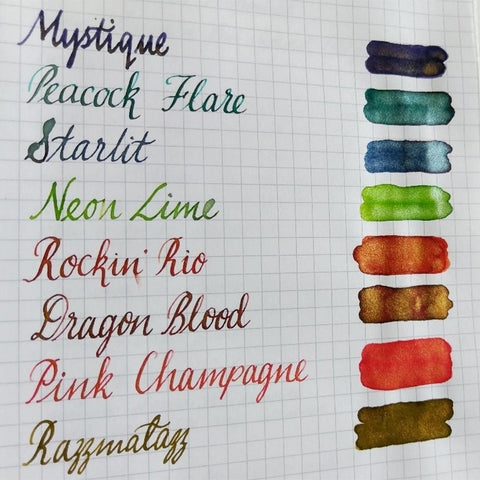 Mystique
Peacock Flare
Starlit
Neon Lime
Rockin' Rio
Dragon Blood
Pink Champagne
Razzmatazz